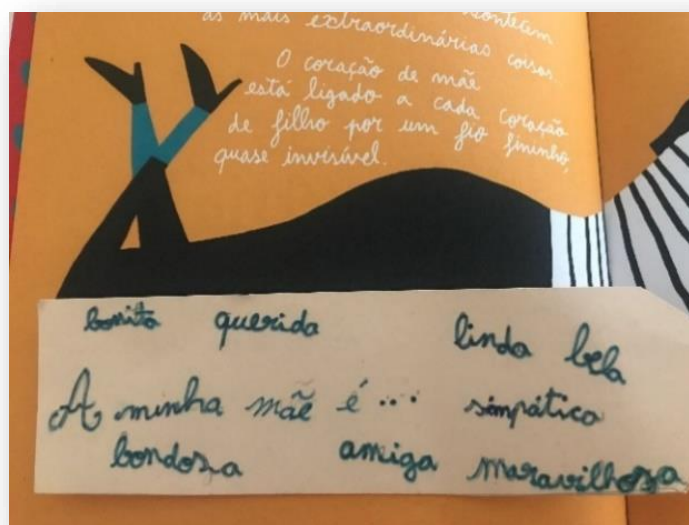 as mais extraordinárias coisas
O coração de mãe
está ligado a cada coração
de filho por um fio fininho,
quase invisível.
bonita querida linda bela
A minha mãe é... simpática
bondosa amiga maravilhosa